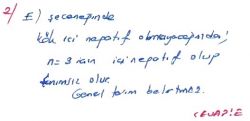 2/ E) seçeneğinde
kök içi negatif olmayacağından;
n=3 için içi negatif olup
tanımsız olur.
Genel terim belirtmez.
CEVAP: E